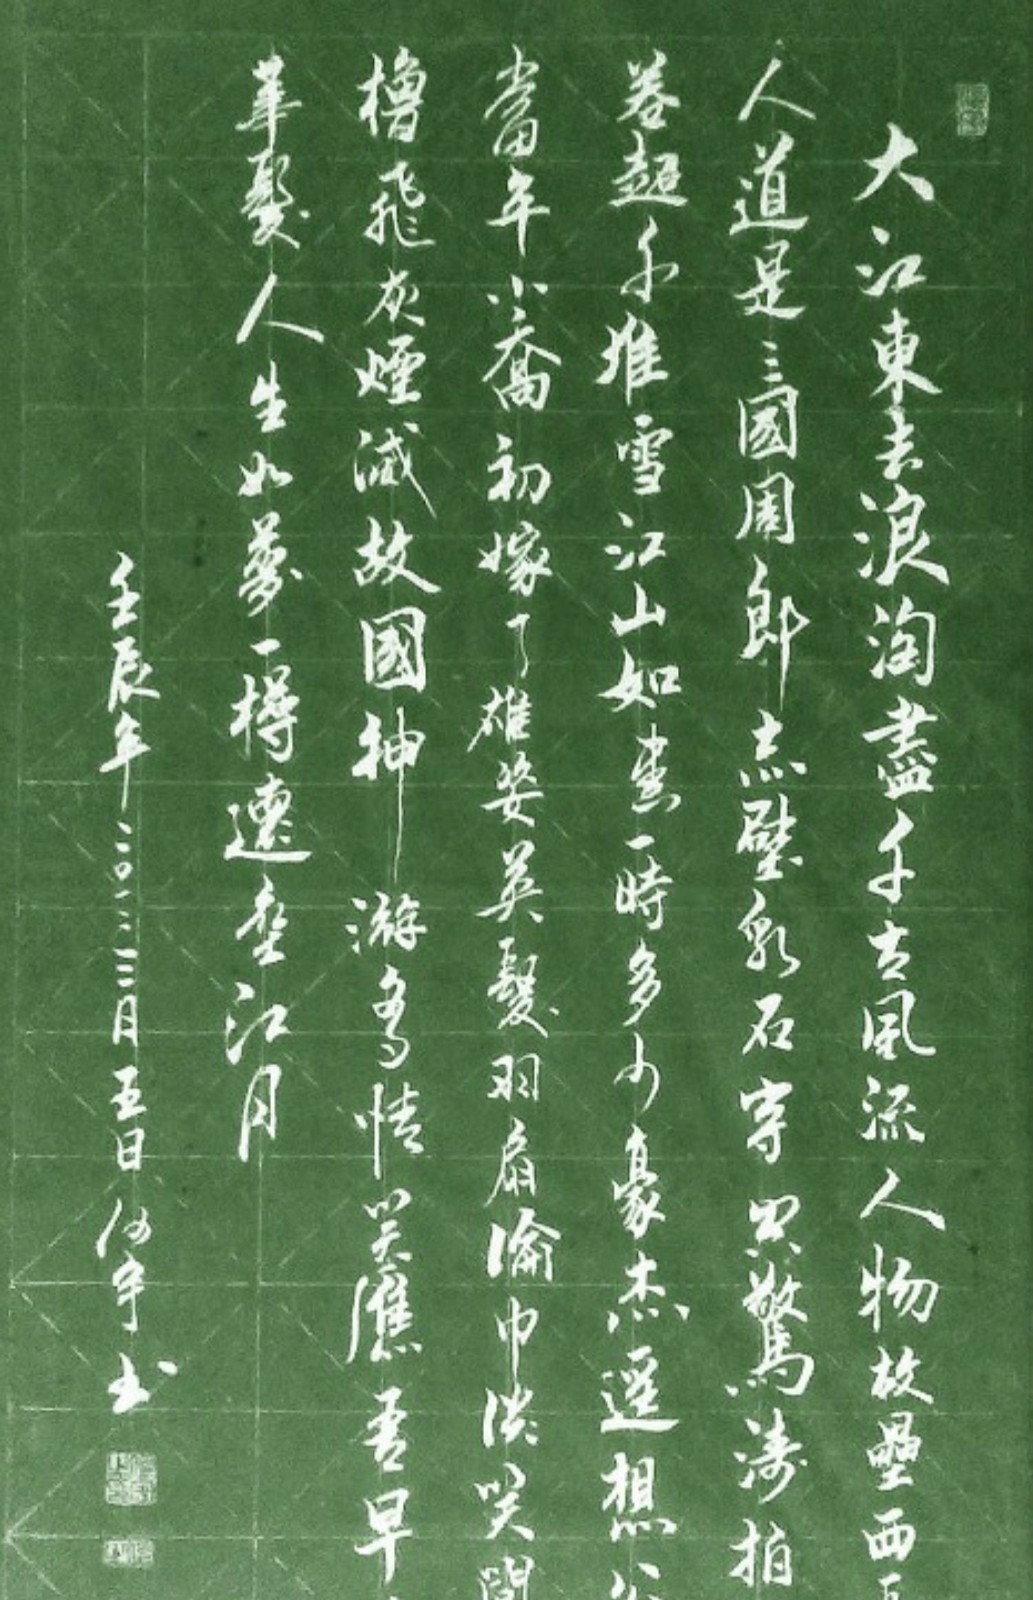 大江東去浪淘盡千古風流人物故壘西
人道是三國周郎赤壁亂石穿空驚濤拍
卷起千堆雪江山如畫一時多少豪杰遥想公
當年小喬初嫁了雄姿英發羽扇綸巾談笑間
櫓飛灰煙滅故國神游多情笑應吾早
華髮人生如夢一樽還酹江月
壬辰年二〇一二三月五日何宇书